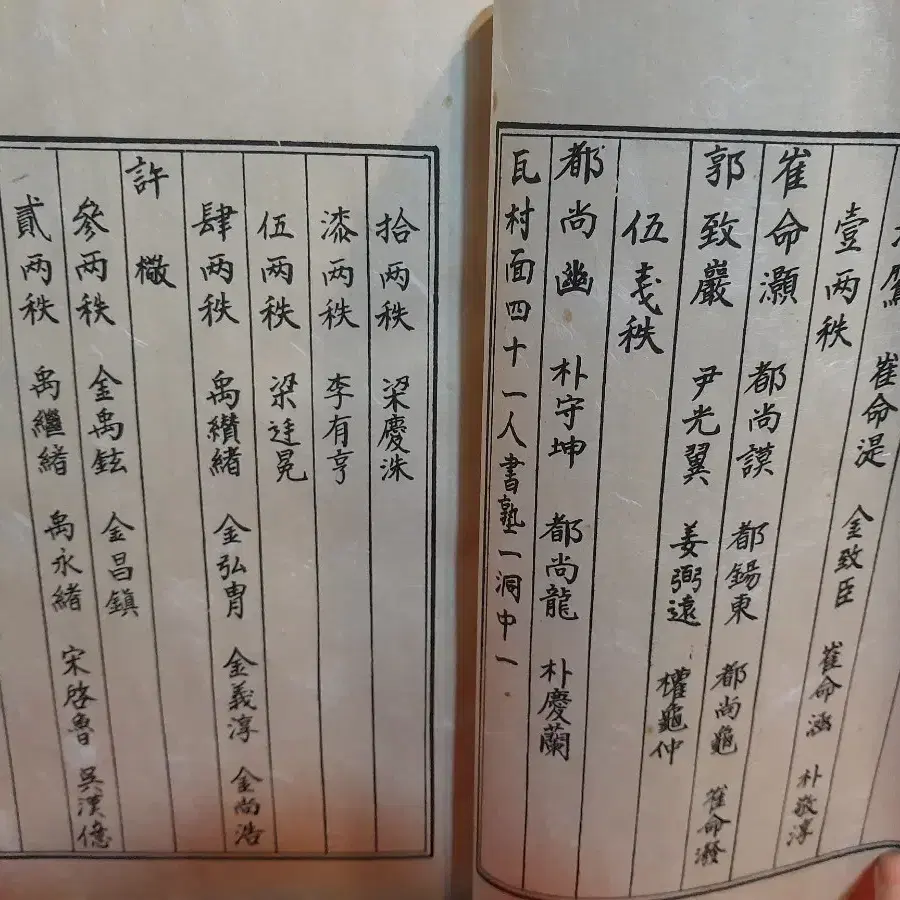 崔命湜 金致臣 崔命涵 朴敬淳
壹两秩
崔命灝 都尚謨 都錫東 都尚龜 崔命潑
郭致嚴 尹光翼 姜弼遠 權龜仲
伍戔秩
都尚幽 朴守坤 都尚龍 朴慶蘭
瓦村面四十一人書塾一洞中一
拾两秩 梁慶洙
漆两秩 李有亨
伍两秩 梁廷冕
肆两秩 禹纘緒 金弘胄 金義淳 金尚浩
許
參两秩 金禹鉉 金昌鎮
貳两秩 禹繼緒 禹永緒 宋啓魯 吳漢億